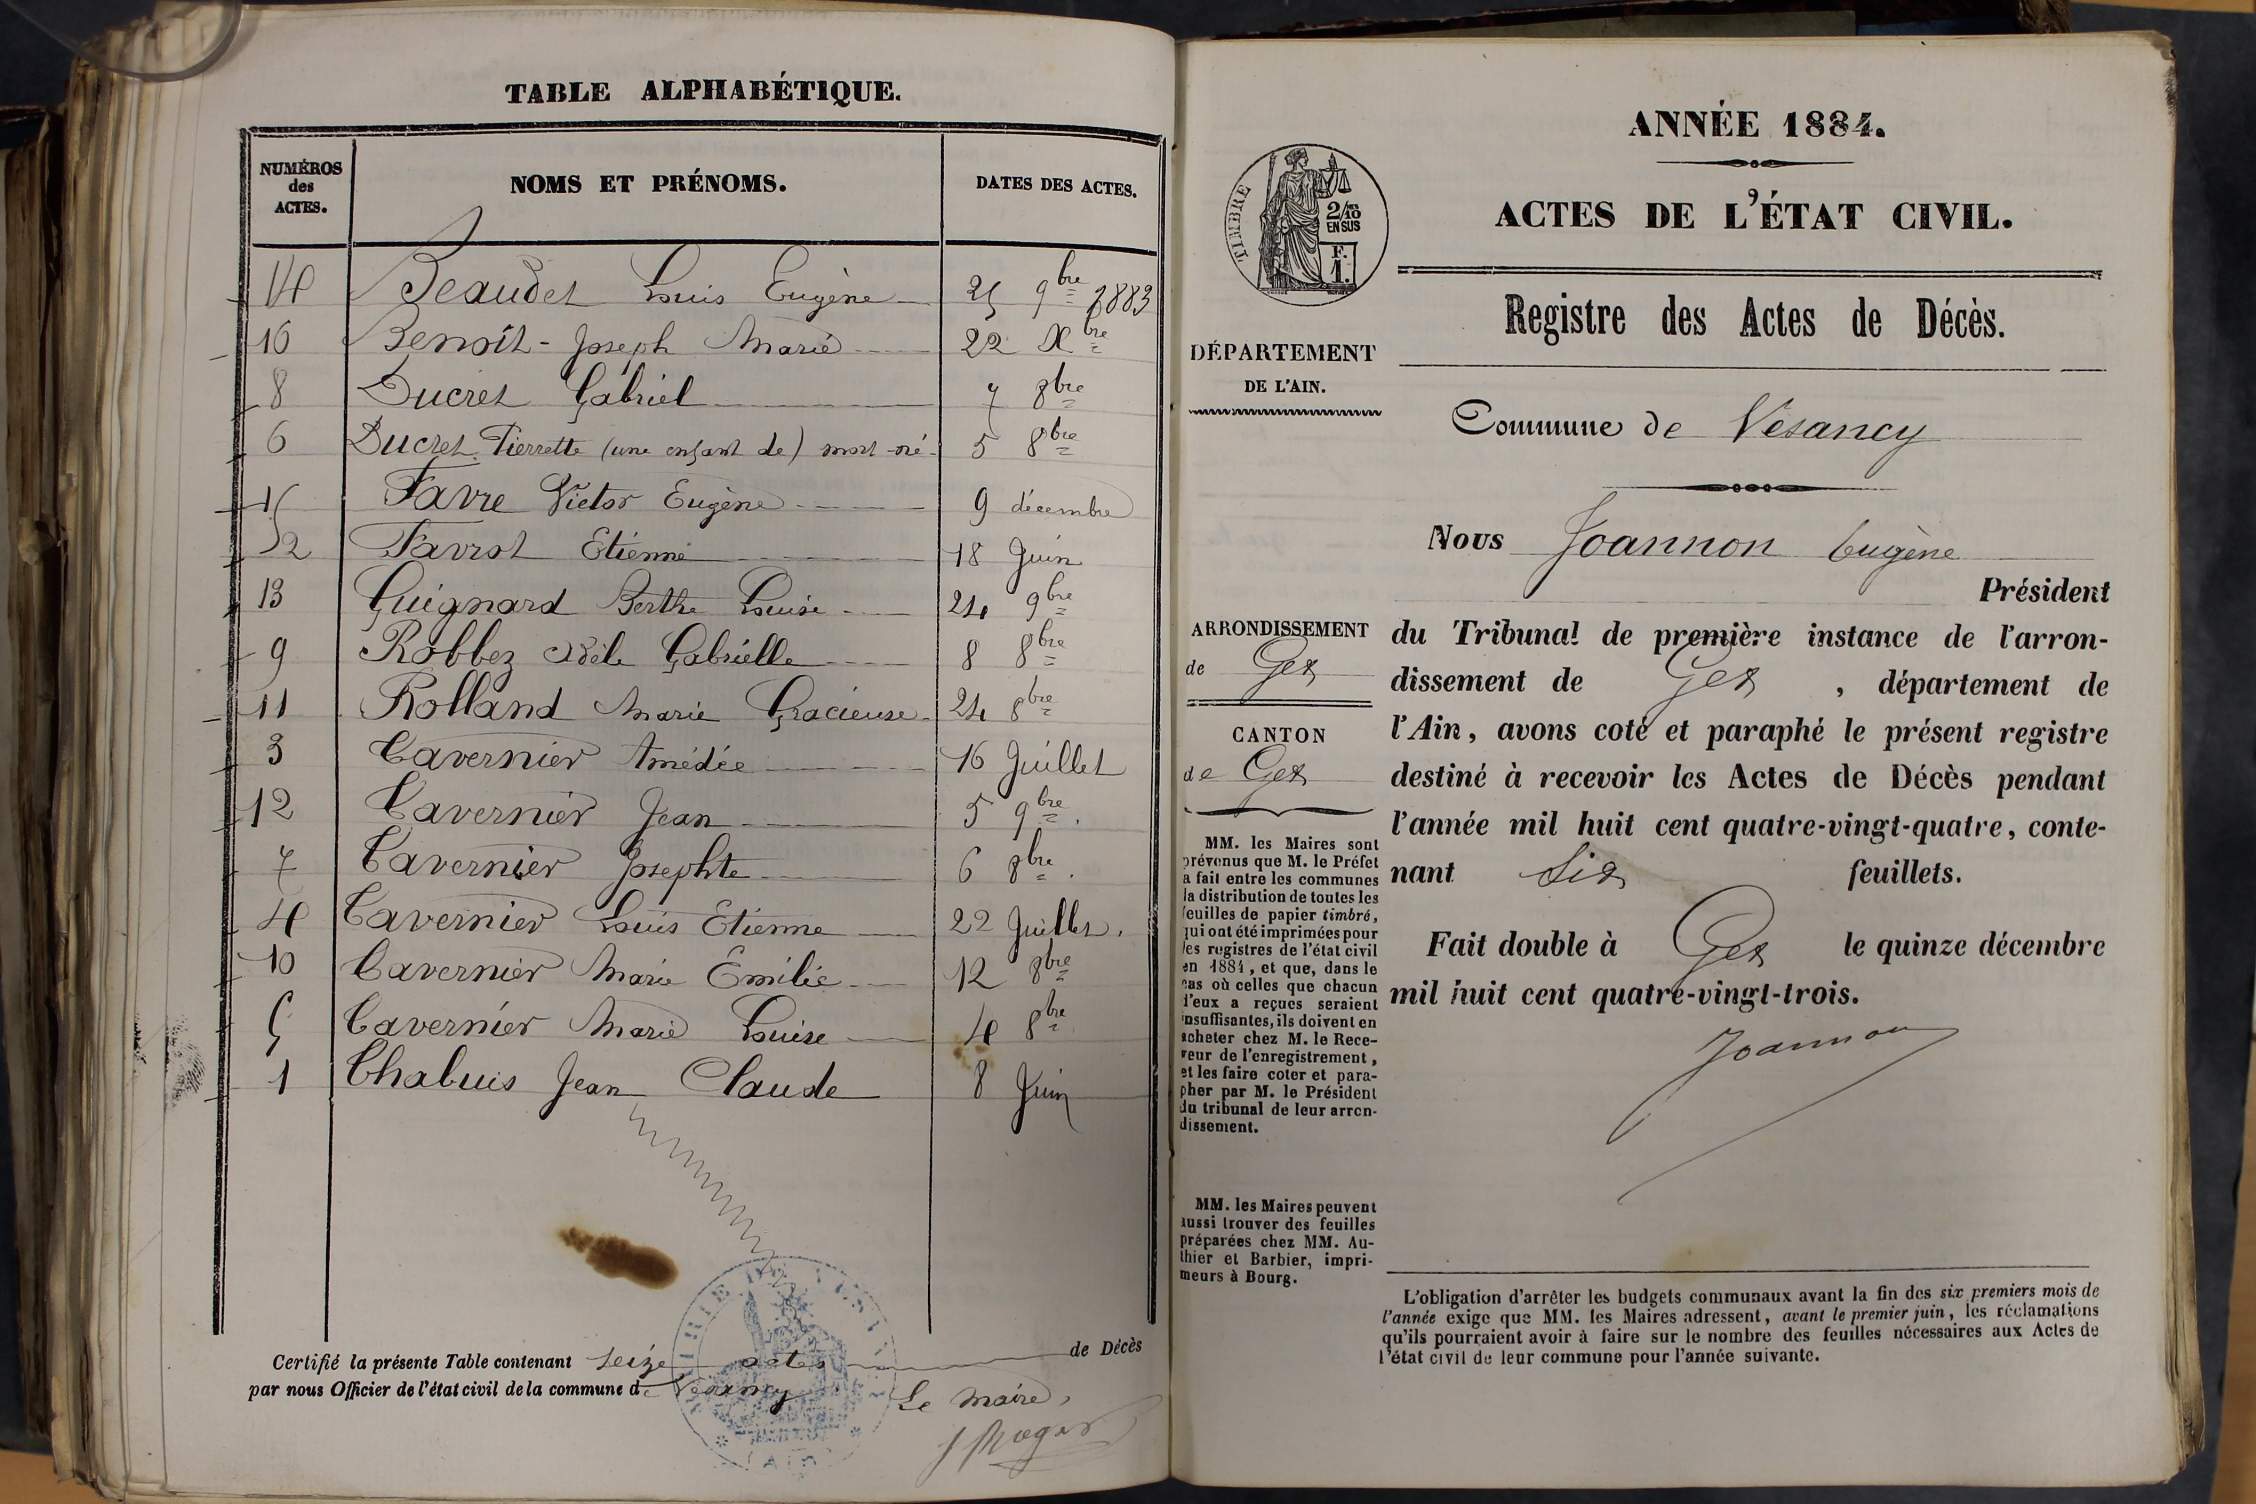 TABLE ALPHABÉTIQUE.
NUMÉROS des ACTES. NOMS ET PRÉNOMS. DATES DES ACTES.
14 Beaudet Louis Eugène 25 9bre 1883
16 Benoît - Joseph Marie 22 Xbre
8 Ducret Gabriel 7 8bre
6 Ducret Pierrette (une enfant de) mort-né 5 8bre
15 Favre Victor Eugène 9 décembre
2 Favrot Etienne 18 Juin
13 Guignard Berthe Louise 24 9bre
9 Robbez Adèle Gabrielle 8 8bre
11 Rolland Marie Gracieuse 24 8bre
3 Tavernier Amédée 16 Juillet
12 Tavernier Jean 5 9bre.
7 Tavernier Josephte 6 8bre.
4 Tavernier Louis Etienne 22 Juillet.
10 Tavernier Marie Emilie 12 8bre
5 Tavernier Marie Louise 4 8bre
1 Thabuis Jean Claude 8 Juin
Certifié la présente Table contenant seize actes de Décès
par nous Officier de l'état civil de la commune de Vesancy
Le maire,
MAIRIE DE VESANCY
(AIN)
ANNÉE 1884.
ACTES DE L'ÉTAT CIVIL.
TIMBRE
2/10 EN SUS
F. 1.
Registre des Actes de Décès.
DÉPARTEMENT
DE L'AIN.
Commune de Vesancy
Nous Joannon Eugène
Président
du Tribunal de première instance de l'arron-
dissement de Gex, département de
l'Ain, avons coté et paraphé le présent registre
destiné à recevoir les Actes de Décès pendant
l'année mil huit cent quatre-vingt-quatre, conte-
nant six feuillets.
Fait double à Gex le quinze décembre
mil huit cent quatre-vingt-trois.
Joannon
ARRONDISSEMENT
de Gex
CANTON
de Gex
MM. les Maires sont
prévenus que M. le Préfet
a fait entre les communes
la distribution de toutes les
feuilles de papier timbré,
qui ont été imprimées pour
les registres de l'état civil
en 1884, et que, dans le
cas où celles que chacun
d'eux a reçues seraient
insuffisantes, ils doivent en
acheter chez M. le Rece-
veur de l'enregistrement,
et les faire coter et para-
pher par M. le Président
du tribunal de leur arron-
dissement.
MM. les Maires peuvent
aussi trouver des feuilles
préparées chez MM. Au-
thier et Barbier, impri-
meurs à Bourg.
L'obligation d'arrêter les budgets communaux avant la fin des six premiers mois de
l'année exige que MM. les Maires adressent, avant le premier juin, les réclamations
qu'ils pourraient avoir à faire sur le nombre des feuilles nécessaires aux Actes de
l'état civil de leur commune pour l'année suivante.